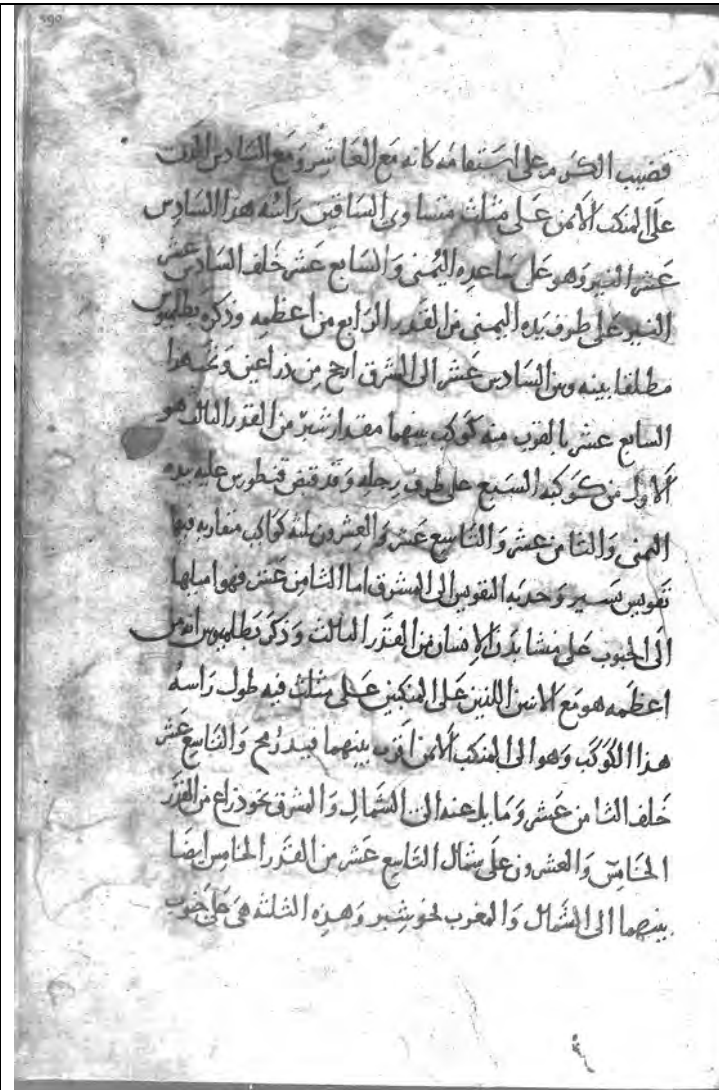 قضيب الكرم على استقامه كانه مع العاشر ومع السادس الذي
على المنكب الأيمن على مثلث متساوي الساقين راسه هذا السادس
عشر النير وهو على ساعده اليمنى والسابع عشر خلف السادس عشر
النير على طرف يده اليمنى من القدر الرابع من اعظمه وذكره بطلميوس
مطلقا بينه وبين السادس عشر الى المشرق ارجح من ذراعين وتحت هذا
السابع عشر بالقرب منه كوكب بينهما مقدار شبر من القدر الثالث هو
الأول من كوكبه السبع على طرف رجله وقد قبض قنطورس عليه بيده
اليمنى والثامن عشر والتاسع عشر والعشرون ثلثه كواكب متقاربه فيها
تقويس يسير وحدبه التقويس الى المشرق اما الثامن عشر فهو اميلها
الى الجنوب على منشا بدن الإنسان من القدر الثالث وذكر بطلميوس انه من
اعظمه هو مع الاثنين اللذين على المنكبين على مثلث فيه طول راسه
هذا الكوكب وهو الى المنكب الأيمن اقرب بينهما قيد رمح والتاسع عشر
خلف الثامن عشر وما يل عنه الى الشمال والمشرق نحو ذراع من القدر
الخامس والعشرون على شمال التاسع عشر من القدر الخامس ايضا
بينهما الى الشمال والمغرب نحو شبر وهذه الثلثه هي على جنوب